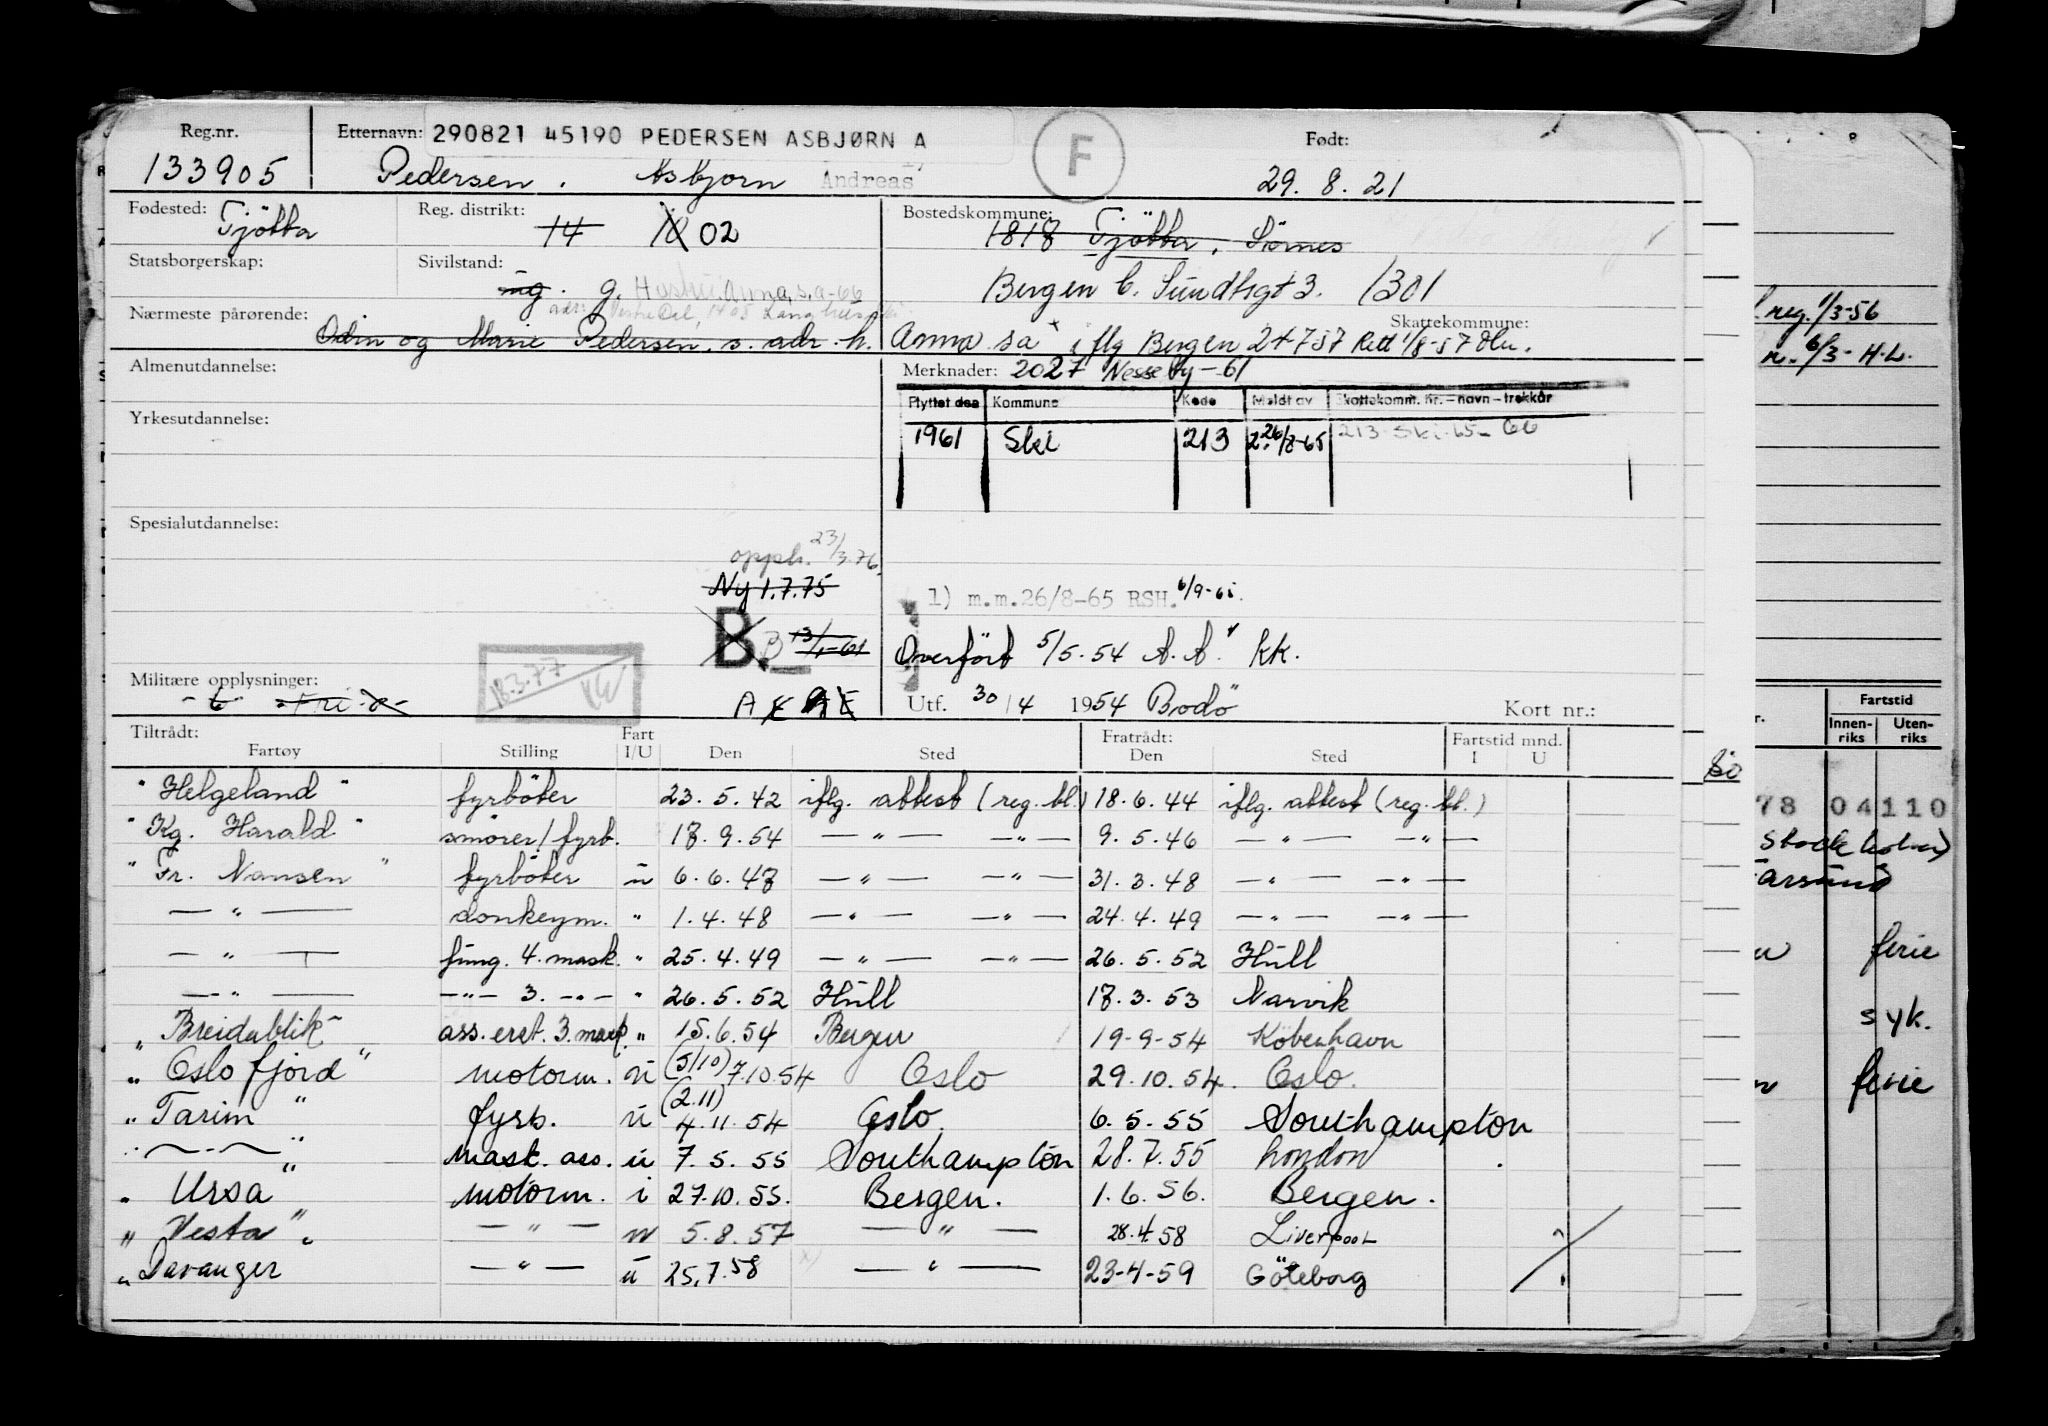 Reg.nr. Etternavn: 290821 45190 PEDERSEN ASBJØRN A F Født:
133905 Pedersen. Asbjørn Andreas 1) 29. 8. 21
Fødested: Tjötta Reg. distrikt: 14 02 Bostedskommune: 1818 Tjötta, Sörnes
Statsborgerskap: Sivilstand: ug. g. Hustru: Anna, s.a-66 Bergen C. Sundtsgt 3. 1301
Nærmeste pårørende: Skattekommune:
Odin og Marie Pedersen, s. adr. h. Anna sa iflg Bergen 24757 Rett 1/8-57
Almenutdannelse: Merknader: 2027 Nesseby-61
Flyttet dea Kommune Kode Meldt av Skattekomm. nr. - navn - trekkår
Yrkesutdannelse: 1961 Ski 213 26/8-65 213 Ski-65-66
Spesialutdannelse:
opph. 23/3.76.
Ny 1.7.75
1) m.m.26/8-65 RSH. 6/9-65.
B B 13/1-61
Overfört 5/5.54 A.A. kk.
18.3.77
Militære opplysninger:
A Utf. 30/4 1954 Bodö Kort nr.:
Tiltrådt: Fart Fratrådt: Fartstid mnd.
Fartøy Stilling I/U Den Sted Den Sted I U
"Helgeland" fyrböter 23.5.42 iflg. attest (reg. bl.) 18.6.44 iflg. attest (reg. bl.)
"Kg. Harald" smörer/fyrb. 17.9.54 — " — — " — 9.5.46 — " — — " —
"Fr. Nansen" fyrböter u 6.6.47 — " — — " — 31.3.48 — " — — " —
— " — donkeym. " 1.4.48 — " — — " — 24.4.49 — " — — " —
— " — fung. 4. mask. " 25.4.49 — " — — " — 26.5.52 Hull
— " — — " — 3. — " — " 26.5.52 Hull 17.3.53 Narvik
"Breidablik" ass. erst. 3. mask. " 15.6.54 Bergen 19-9-54 Köbenhavn
"Oslofjord" motorm. u (5/10) 7.10.54 Oslo 29.10.54. Oslo.
"Tarim" fyrb. u (2.11) 4.11.54 Oslo. 6.5.55 Southampton
— " — mask. ass. u 7.5.55 Southampton 28.7.55 London
"Ursa" motorm. i 27.10.55. Bergen. 1.6.56. Bergen.
"Vesta" — " — u 5.8.57 — " — 28.4.58 Liverpool
"Davanger — " — u 25.7.58 — " — 23-4-59 Göteborg
reg. 1/3-56
6/3- H.L.
Fartstid
Innen-
riks
Uten-
riks
78 04110
Stockholm)
Farsund
ferie
syk.
ferie